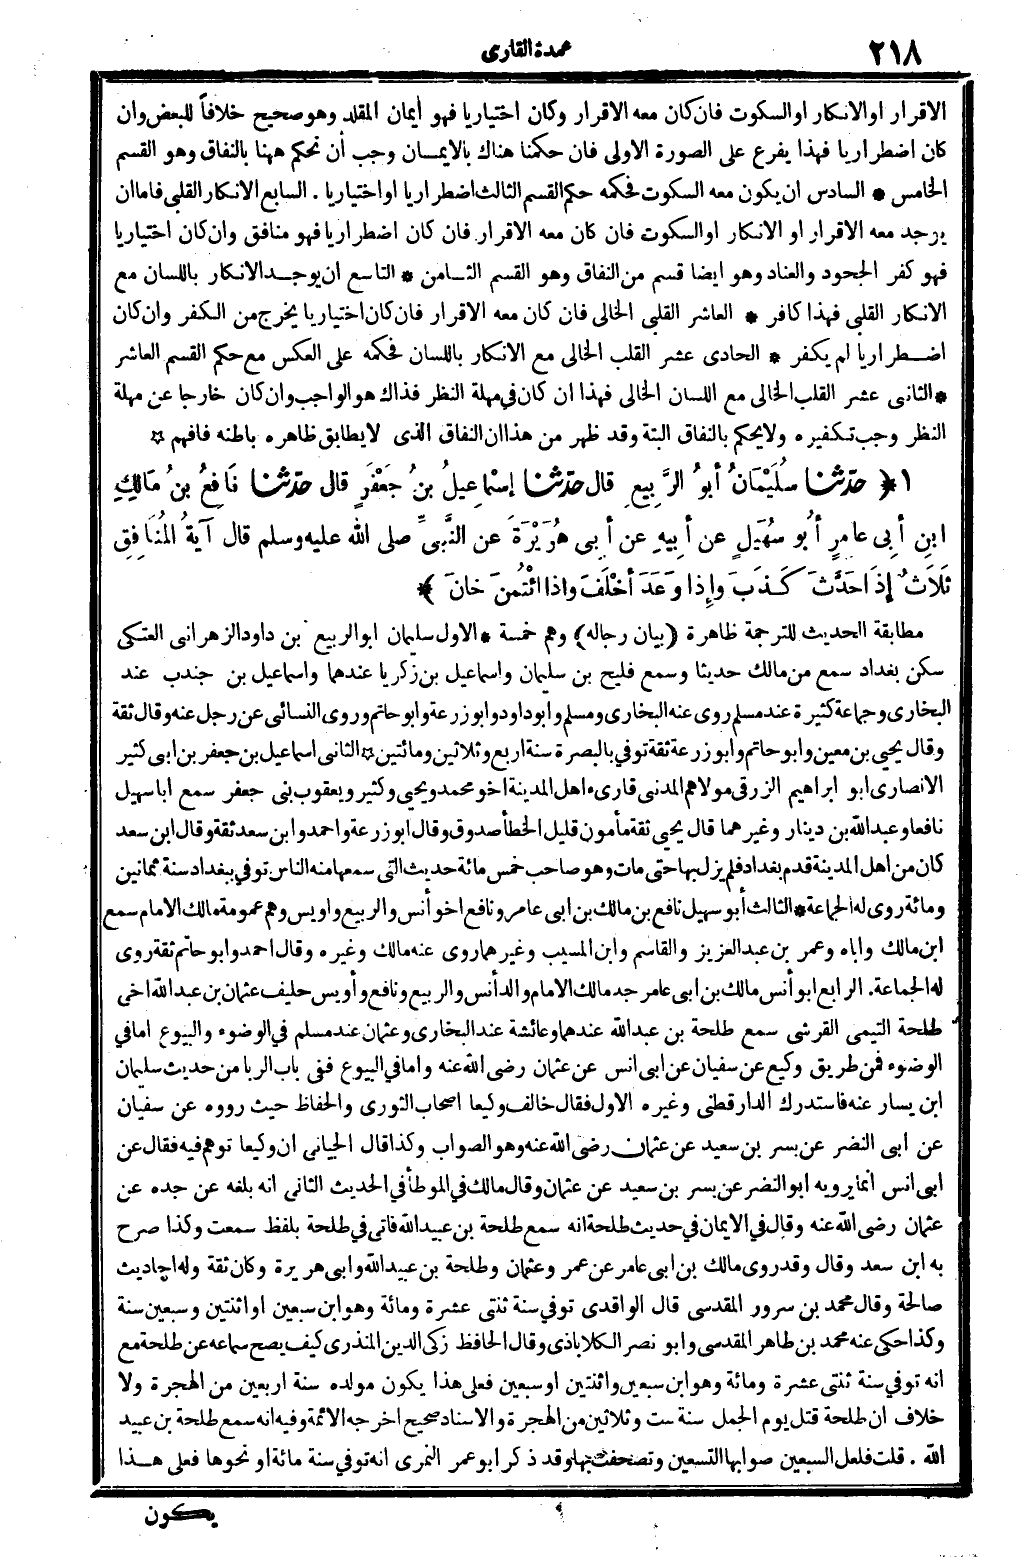 ٢١٨
عمدة القارى
الاقرار اوالانكار اوالسكوت فان كان معه الاقرار وكان اختياريا فهو أيمان المقلد وهو صحيح خلافاً للبعض وان
كان اضطراريا فهذا يفرع على الصورة الاولى فان حكمنا هناك بالايمان وجب أن نحكم ههنا بالنفاق وهو القسم
الخامس * السادس ان يكون معه السكوت فحكمه حكم القسم الثالث اضطراريا او اختياريا . السابع الانكار القلبى فاما ان
يوجد معه الاقرار او الانكار اوالسكوت فان كان معه الاقرار فان كان اضطراريا فهو منافق وان كان اختياريا
فهو كفر الجحود والعناد وهو ايضا قسم من النفاق وهو القسم الثامن * التاسع ان يوجد الانكار باللسان مع
الانكار القلبى فهذا كافر * العاشر القلب الخالى فان كان معه الاقرار فان كان اختياريا يخرج من الكفر وان كان
اضطراريا لم يكفر * الحادى عشر القلب الخالى مع الانكار باللسان فحكمه على العكس مع حكم القسم العاشر
* الثانى عشر القلب الخالى مع اللسان الخالى فهذا ان كان فى مهلة النظر فذاك هو الواجب وان كان خارجا عن مهلة
النظر وجب تكفيره ولا يحكم بالنفاق البتة وقد ظهر من هذا ان النفاق الذى لا يطابق ظاهره باطنه فافهم ☆
١ ﴿ حَدَّثَنَا سُلَيْمَانُ أبُو الرَّبِيعِ قال حَدَّثَنَا إسْمَاعِيلُ بنُ جَعْفَرٍ قال حَدَّثَنَا نَافِعُ بنُ مَالِكِ
ابنِ أبِى عامِرٍ أبُو سُهَيْلٍ عن أبِيهِ عن أبِى هُرَيْرَةَ عن النَّبِىِّ صلى الله عليه وسلم قال آيَةُ المُنَافِقِ
ثَلَاثٌ إذَا حَدَّثَ كَذَبَ وإذا وَعَدَ أخْلَفَ واذا ائْتُمِنَ خانَ ﴾
مطابقة الحديث للترجمة ظاهرة (بيان رجاله) وهم خمسة * الاول سليمان ابو الربيع بن داود الزهرانى العتكى
سكن بغداد سمع من مالك حديثا وسمع فليح بن سليمان واسماعيل بن زكريا عندهما واسماعيل بن جندب عند
البخارى وجماعة كثيرة عند مسلم روى عنه البخارى ومسلم وابو داود وابو زرعة وابو حاتم وروى النسائى عن رجل عنه وقال ثقة
وقال يحيى بن معين وابو حاتم وابو زرعة ثقة توفي بالبصرة سنة اربع وثلاثين ومائتين ☆ الثانى اسماعيل بن جعفر بن ابى كثير
الانصارى ابو ابراهيم الزرقى مولاهم المدنى قارىء اهل المدينة اخو محمد ويحيى وكثير ويعقوب بنى جعفر سمع ابا سهيل
نافعا وعبدالله بن دينار وغيرهما قال يحيى ثقة مأمون قليل الخطأ صدوق وقال ابو زرعة واحمد وابن سعد ثقة وقال ابن سعد
كان من اهل المدينة قدم بغداد فلم يزل بها حتى مات وهو صاحب خمس مائة حديث التى سمعها منه الناس توفي ببغداد سنة ثمانين
ومائة روى له الجماعة * الثالث أبو سهيل نافع بن مالك بن ابى عامر ونافع اخو أنس والربيع واويس وهم عمومة مالك الامام سمع
ابن مالك واباه وعمر بن عبدالعزيز والقاسم وابن المسيب وغيرهما روى عنه مالك وغيره وقال احمد وابو حاتم ثقة روى
له الجماعة . الرابع ابو أنس مالك بن ابى عامر جد مالك الامام والد أنس والربيع ونافع وأويس حليف عثمان بن عبد الله اخى
طلحة التيمى القرشى سمع طلحة بن عبدالله عندهما وعائشة عند البخارى وعثمان عند مسلم في الوضوء والبيوع اما في
الوضوء فمن طريق وكيع عن سفيان عن ابى انس عن عثمان رضى الله عنه واما في البيوع ففى باب الربا من حديث سليمان
ابن يسار عنه فاستدرك الدارقطنى وغيره الاول فقال خالف وكيعا اصحاب الثورى والحفاظ حيث رووه عن سفيان
عن ابى النضر عن بسر بن سعيد عن عثمان رضى الله عنه وهو الصواب وكذا قال الجيانى ان وكيعا توهم فيه فقال عن
ابى انس انما يرويه ابو النضر عن بسر بن سعيد عن عثمان وقال مالك في الموطأ في الحديث الثانى انه بلغه عن جده عن
عثمان رضى الله عنه وقال في الايمان في حديث طلحة انه سمع طلحة بن عبيد الله فاتى في طلحة بلفظ سمعت وكذا صرح
به ابن سعد وقال وقد روى مالك بن ابى عامر عن عمر وعثمان وطلحة بن عبيد الله وابى هريرة وكان ثقة وله احاديث
صالحة وقال محمد بن سرور المقدسى قال الواقدى توفي سنة ثنتى عشرة ومائة وهو ابن سبعين او اثنتين وسبعين سنة
وكذا حكى عنه محمد بن طاهر المقدسى وابو نصر الكلاباذى وقال الحافظ زكى الدين المنذرى كيف يصح سماعه عن طلحة مع
انه توفي سنة ثنتى عشرة ومائة وهو ابن سبعين واثنتين او سبعين فعلى هذا يكون مولده سنة اربعين من الهجرة ولا
خلاف ان طلحة قتل يوم الجمل سنة ست وثلاثين من الهجرة والاسناد صحيح اخرجه الائمة وفيه انه سمع طلحة بن عبيد
الله . قلت فلعل السبعين صوابها التسعين وتصحفت بها وقد ذكر ابو عمر النمرى انه توفي سنة مائة او نحوها فعلى هذا
يكون